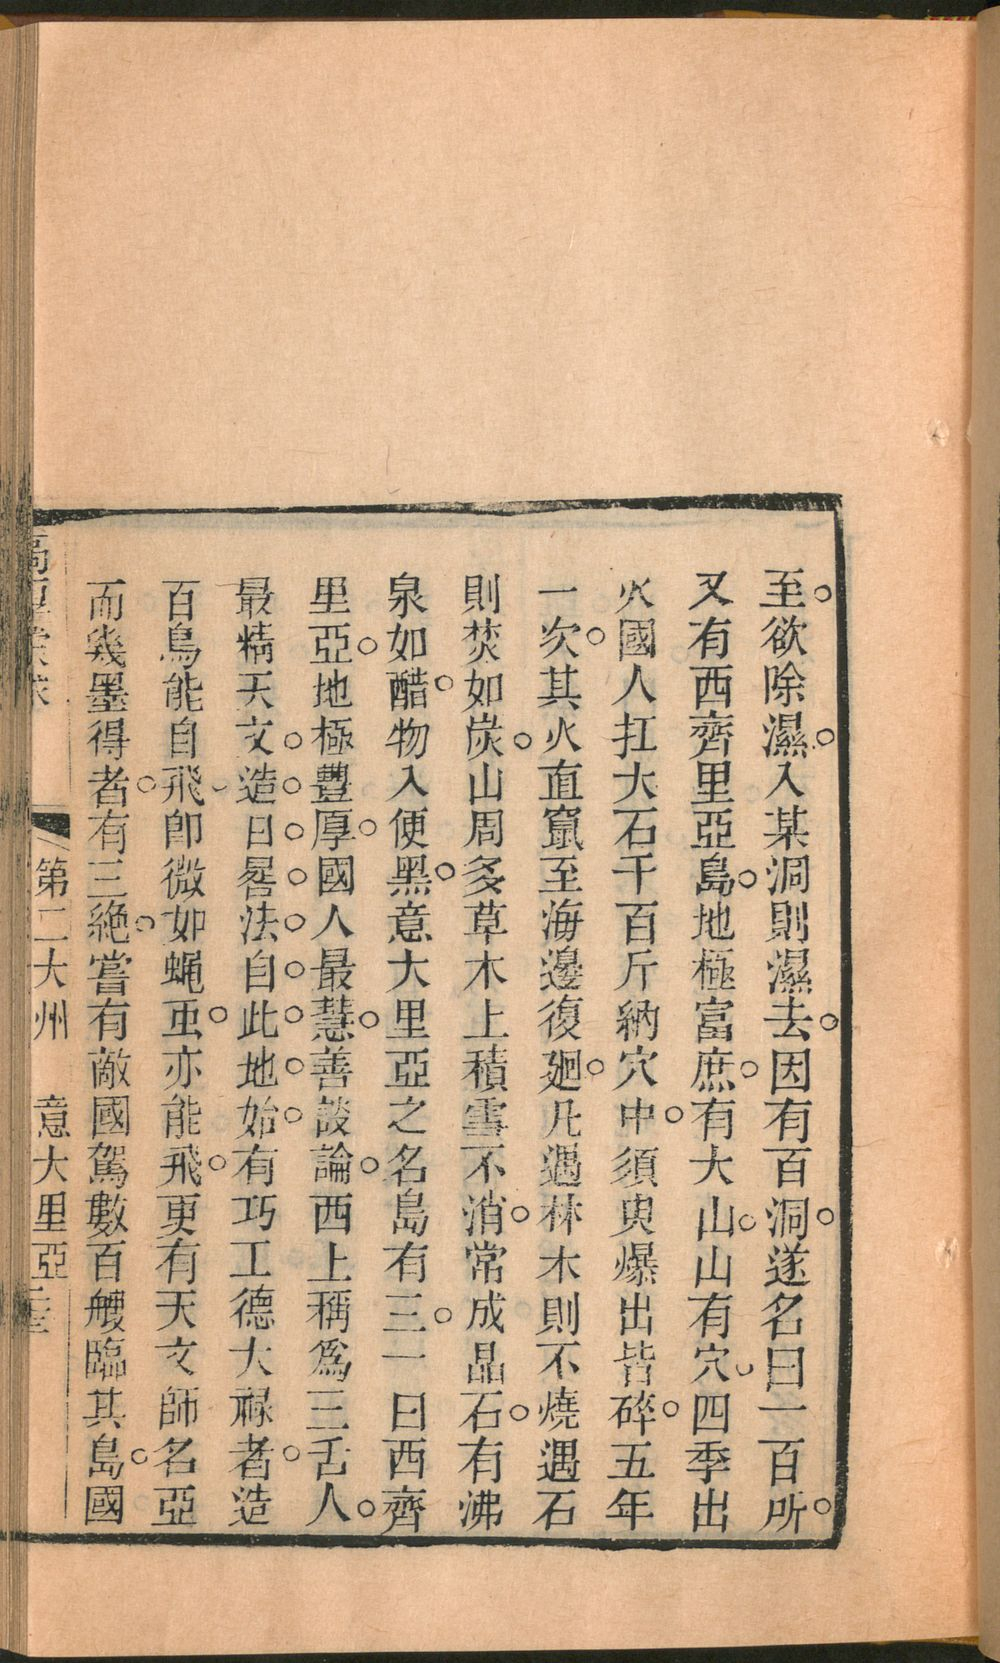 至欲除濕入某洞則濕去因有百洞遂名曰一百所
又有西齊里亞島地極富庶有大山山有穴四季出
火國人扛大石千百斤納穴中須臾爆出皆碎五年
一次其火直竄至海邊復廻凡遇林木則不燒遇石
則焚如炭山周多草木上積雪不消常成晶石有沸
泉如醋物入便黑意大里亞之名島有三一曰西齊
里亞地極豐厚國人最慧善談論西上稱爲三舌人
最精天文造日晷法自此地始有巧工德大祿者造
百鳥能自飛卽微如蠅虫亦能飛更有天文師名亞
而幾墨得者有三絶嘗有敵國駕數百艘臨其島國
第二大州 意大里亞